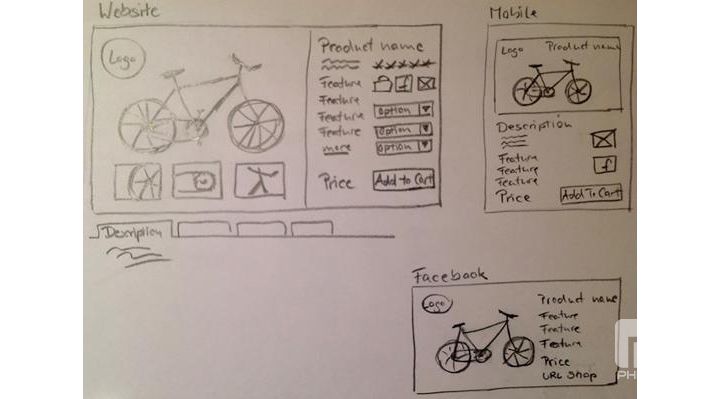 Website
Logo
Product name
Feature
Feature
Feature
Feature
more
f
option
option
option
Price
Add to Cart
Description
Mobile
Logo
Product name
Description
Feature
Feature
Feature
f
Price
Add To Cart
Facebook
Logo
Product name
Feature
Feature
Feature
Price
URL Shop
PH